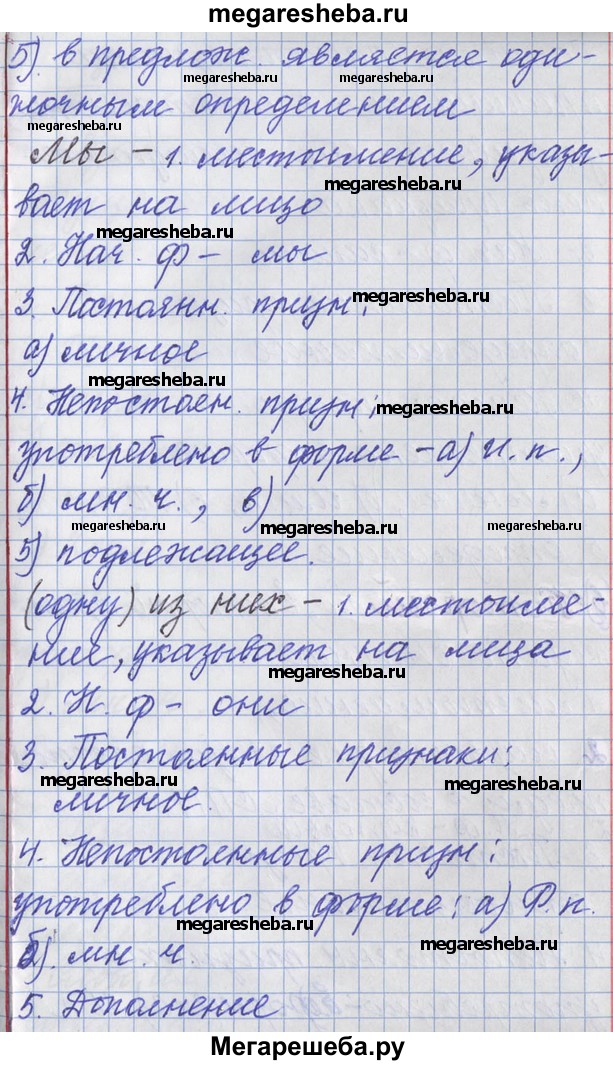 megaresheba.ru
5). в предлож. является оди-
megaresheba.ru megaresheba.ru
ночным определением
megaresheba.ru
Мы – 1. местоимение, указы-
megaresheba.ru
вает на лицо
megaresheba.ru
2. Нач. ф – мы
3. Постоянн. призн:
а) личное
megaresheba.ru
4. Непостоян. призн:
megaresheba.ru
употреблено в форме – а) И. п.,
б) мн. ч., в)
megaresheba.ru megaresheba.ru
5) подлежащее.
megaresheba.ru
(одну) из них – 1. местоиме-
ние, указывает на лица
2. Н. ф – они
3. Постоянные признаки:
megaresheba.ru megaresheba.ru
личное.
4. Непостоянные призн:
употреблено в форме: а) Р. п.
megaresheba.ru
б). мн. ч.
megaresheba.ru
5. Дополнение
megaresheba.ru
Мегарешеба.ру